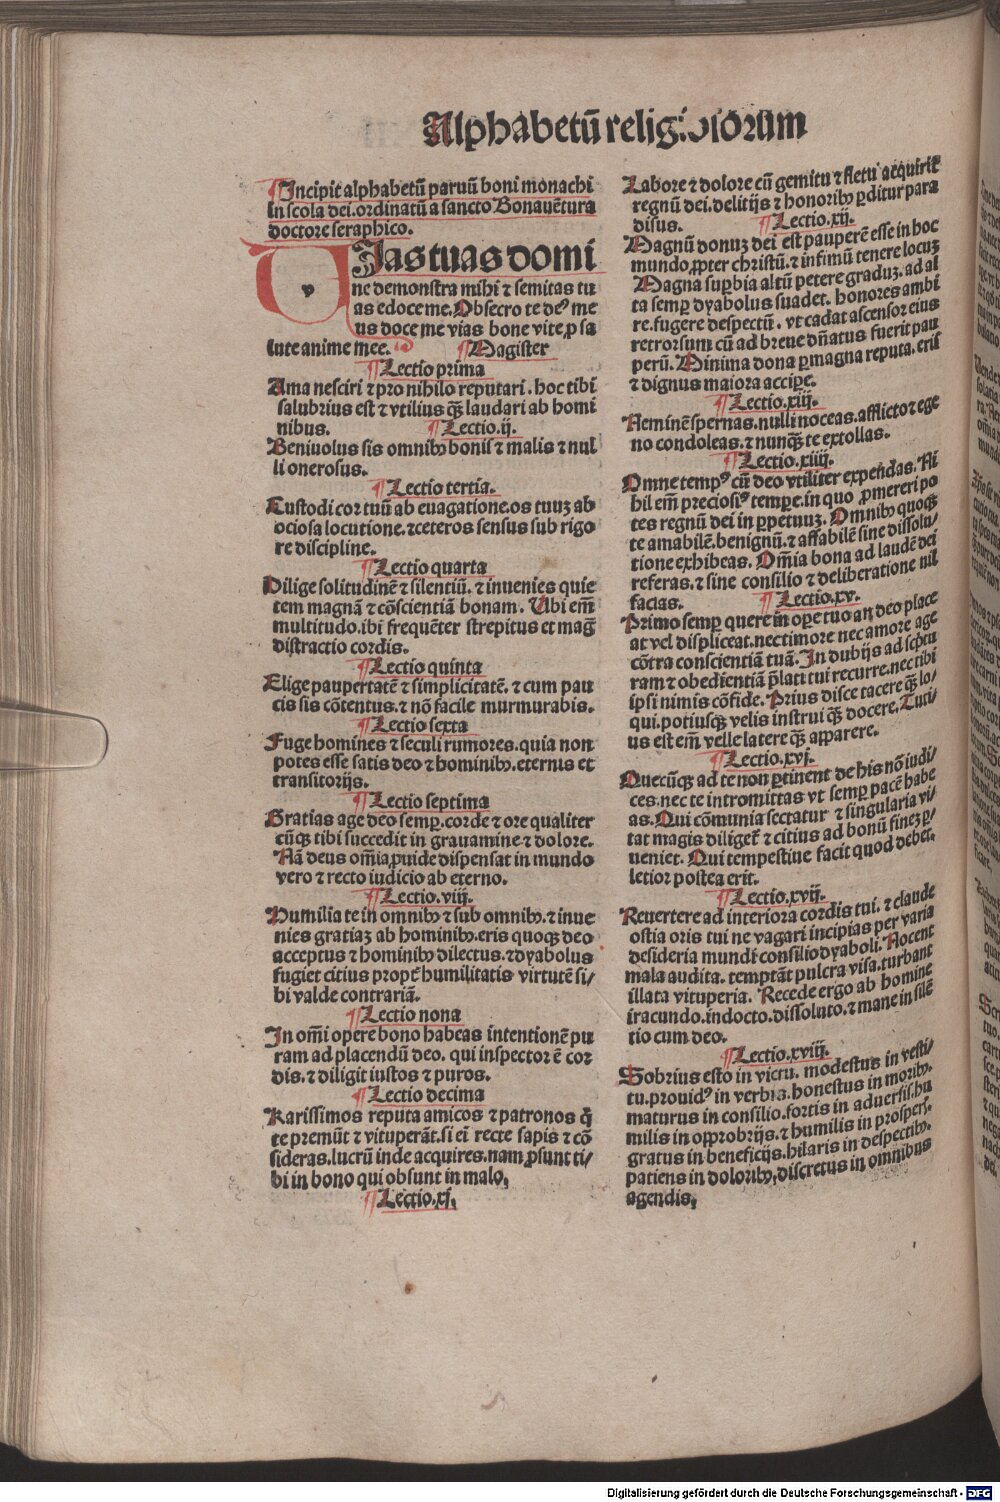 Alphabetū religiosorum
¶Incipit alphabetū paruū boni monachi
in scola dei. ordinatū a sancto Bonauētura
doctore seraphico.
VIas tuas domi
ne demonstra mihi ⁊ semitas tu
as edoce me. Obsecro te deꝰ me
us doce me vias bone vite, ꝓ sa
lute anime mee. ¶Magister
¶Lectio prima
Ama nesciri ⁊ pro nihilo reputari. hoc tibi
salubrius est ⁊ vtilius q̄ꝫ laudari ab homi
nibus. ¶Lectio.ij.
Beniuolus sis omnibꝫ bonis ⁊ malis ⁊ nul
li onerosus.
¶Lectio tertia.
Custodi cor tuū ab euagatione. os tuuꝫ ab
ociosa locutione. ⁊ ceteros sensus sub rigo
re discipline.
¶Lectio quarta
Dilige solitudinē ⁊ silentiū. ⁊ inuenies quie
tem magnā ⁊ cōscientiā bonam. Ubi em̄
multitudo. ibi frequēter strepitus et maḡ
distractio cordis.
¶Lectio quinta
Elige paupertatē ⁊ simplicitatē. ⁊ cum pau
cis sis cōtentus. ⁊ nō facile murmurabis.
¶Lectio sexta
Fuge homines ⁊ seculi rumores. quia non
potes esse satis deo ⁊ hominibꝫ. eternis et
transitorijs.
¶Lectio septima
Gratias age deo semꝑ. corde ⁊ ore qualiter
cūqꝫ tibi succedit in grauamine ⁊ dolore.
Nā deus om̄ia ꝓuide dispensat in mundo
vero ⁊ recto iudicio ab eterno.
¶Lectio.viij.
Humilia te in omnibꝫ ⁊ sub omnibꝫ. ⁊ inue
nies gratiaꝫ ab hominibꝫ. eris quoqꝫ deo
acceptus ⁊ hominibꝫ dilectus. ⁊ dyabolus
fugiet citius propt̄ humilitatis virtutē si/
bi valde contrariā.
¶Lectio nona
In om̄i opere bono habeas intentionē pu
ram ad placendū deo. qui inspector ē cor
dis. ⁊ diligit iustos ⁊ puros.
¶Lectio decima
Karissimos reputa amicos ⁊ patronos q̄
te premūt ⁊ vituperāt. si ei recte sapis ⁊ cō
sideras. lucrū inde acquires. nam ꝓsunt ti/
bi in bono qui obsunt in malo,
¶Lectio.xj.
Labore ⁊ dolore cū gemitu ⁊ fletu acquirit̄
regnū dei. delitijs ⁊ honoribꝫ ꝑditur para
disus. ¶Lectio.xij.
Magnū donuꝫ dei est pauperē esse in hoc
mundo ꝓpter christū. ⁊ infimū tenere locuꝫ
Magna suꝑbia altū petere graduꝫ. ad al
ta semꝑ dyabolus suadet. honores ambi
re. fugere despectū. vt cadat ascensor eius
retrorsum cū ad breue dn̄atus fuerit pau
perū. Minima dona ꝑ magna reputa. eris
⁊ dignus maiora accipe.
¶Lectio.xiij.
Neminē spernas. nulli noceas. afflicto ⁊ ege
no condoleas. ⁊ nunq̄ꝫ te extollas.
¶Lectio.xiiij.
Omne tempꝰ cū deo vtiliter expendas. Ni
hil em̄ preciosiꝰ tempe. in quo ꝓmereri po
tes regnū dei in ꝑpetuuꝫ. Omnibꝫ quoqꝫ
te amabilē. benignū. ⁊ affabilē sine dissolu/
tione exhibeas. Om̄ia bona ad laudē dei
referas. ⁊ sine consilio ⁊ deliberatione nil
facias. ¶Lectio.xv.
Primo semꝑ quere in oꝑe tuo an deo place
at vel displiceat. nec timore nec amore age
cōtra conscientiā tuā. In dubijs ad scp̄tu
ram ⁊ obedientiā p̄lati tui recurre. nec tibi
ipsi nimis cōfide. Prius disce tacere q̄ꝫ lo/
qui. potiusqꝫ velis instrui q̄ꝫ docere. Tuti/
us est em̄ velle latere q̄ꝫ apparere.
¶Lectio.xvj.
Quecūqꝫ ad te non ꝑtinent de his nō iudi/
ces. nec te intromittas vt semꝑ pacē habe
as. Qui cōmunia sectatur ⁊ singularia vi/
tat magis diliget̄ ⁊ citius ad bonū fineꝫ ꝑ/
ueniet. Qui tempestiue facit quod debet.
letior postea erit.
¶Lectio.xvij.
Reuertere ad interiora cordis tui. ⁊ claude
ostia oris tui ne vagari incipias per varia
desideria mundi consilio dyaboli. Nocent
mala audita. temptāt pulcra visa. turbant
illata vituperia. Recede ergo ab homine
iracundo. indocto. dissoluto. ⁊ mane in silē
tio cum deo.
¶Lectio.xviij.
Sobrius esto in victu. modestus in vesti/
tu. prouidꝰ in verbis. honestus in moribꝫ.
maturus in consilio. fortis in aduersis. hu
milis in opprobrijs. ⁊ humilis in prosperis.
gratus in beneficijs. hilaris in despectibꝫ.
patiens in doloribꝫ, discretus in omnibus
agendis,
Digitalisierung gefördert durch die Deutsche Forschungsgemeinschaft - DFG